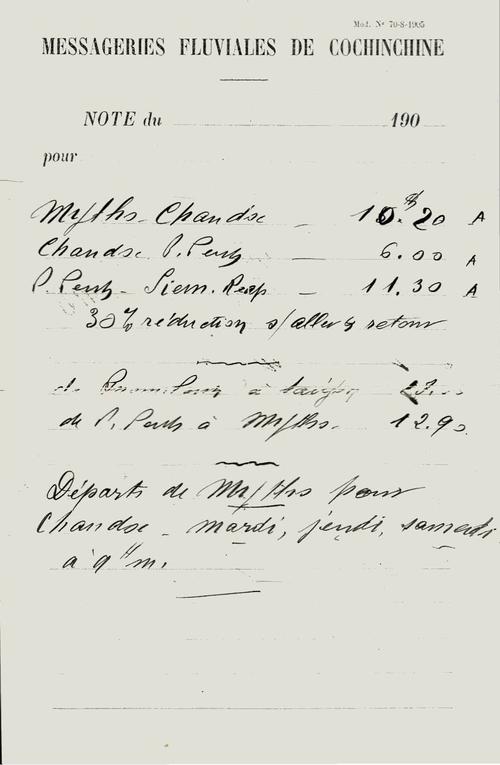 Mod. Nº 70-8-1905
MESSAGERIES FLUVIALES DE COCHINCHINE
NOTE du 190
pour
Mytho - Chaudoc - 10.$20 A
Chaudoc P. Penh - 6.00 A
P. Penh - Siem. Reap - 11.30 A
30% réduction s/ aller & retour
de Pnom Penh à Saigon
de P. Penh à Mytho - 12.90
Départs de Mytho pour
Chaudoc - mardi, jeudi, samedi
à 9 H m.